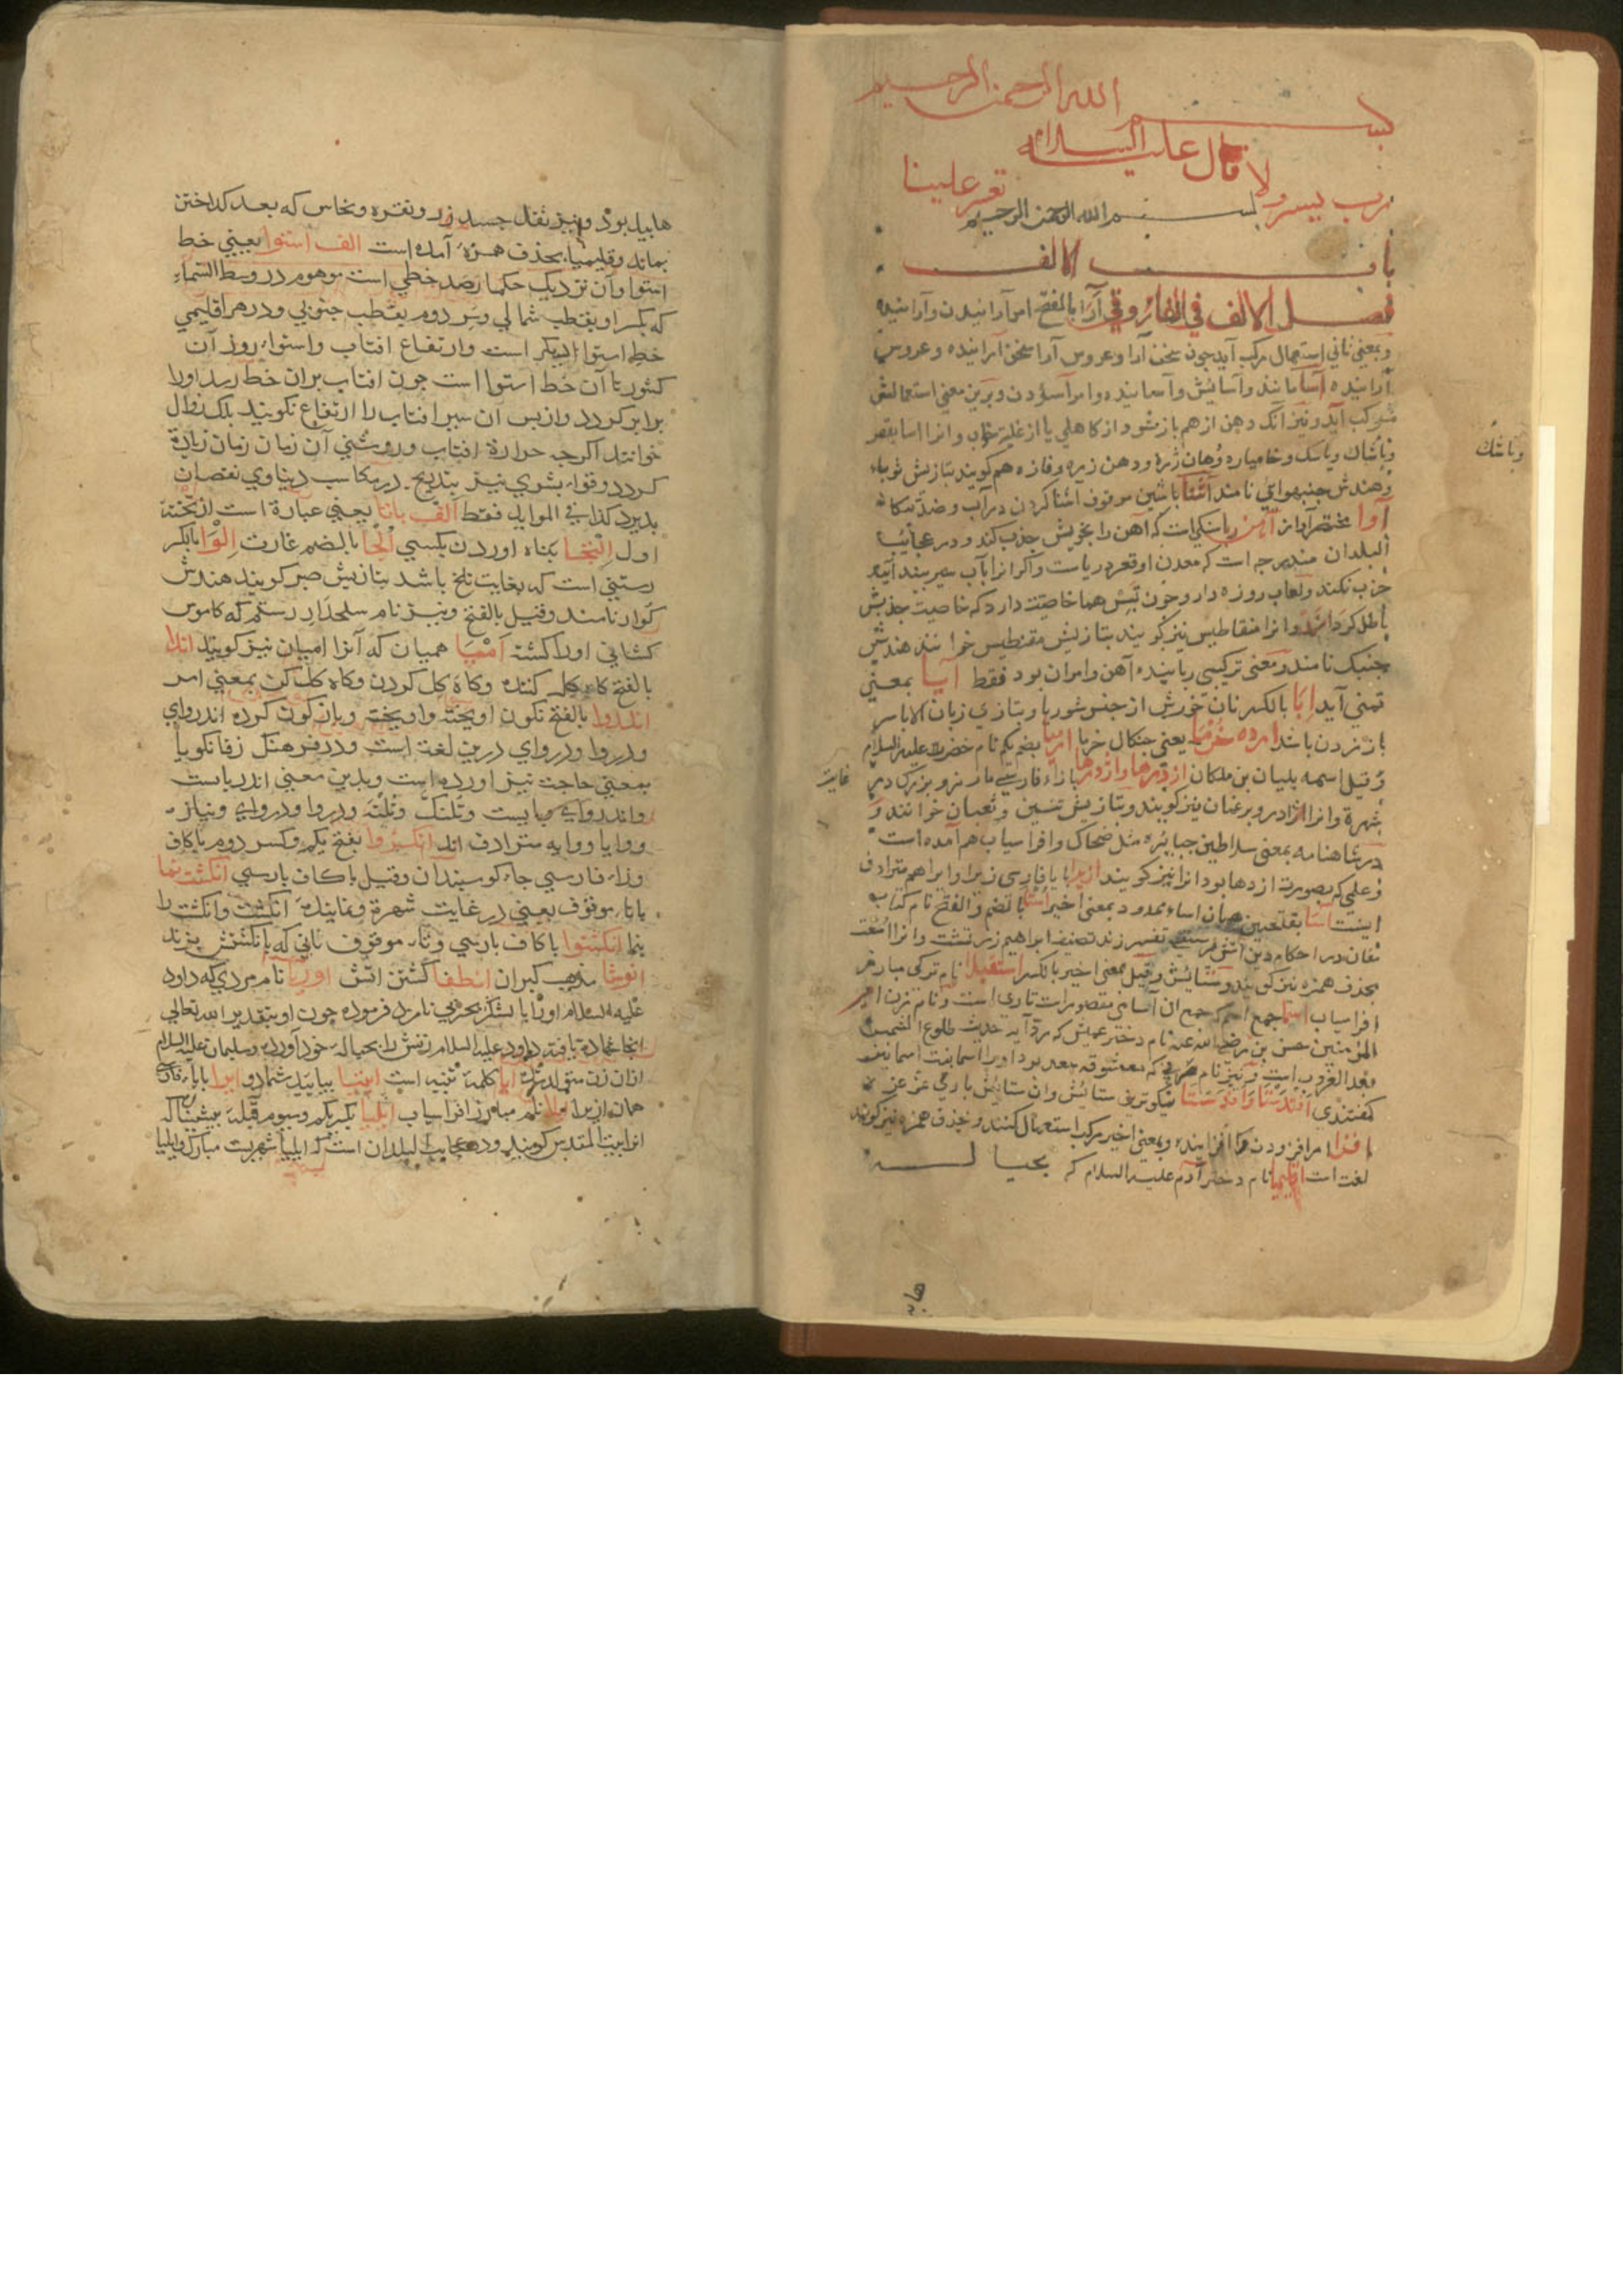 بسم الله الرحمن الرحيم
قال عليه السلام
رب يسر ولا تعسر علينا
بسم الله الرحمن الرحيم
باب الالف
فصل الالف في الفاروقي آرا بالفتح امر آرائيدن و آراينده
و بمعني ثاني استعمال مركب آيد چون سخن آرا و عروس آرا سخن آراينده و عروس
آراينده آسا مانند و آسايش و آساينده و امر آسودن و برين معني استعمالش
مركب آيد و نيز آنك دهن از هم باز شود از كاهلي يا از غلبه خواب و انرا اسا بقصر
و باشك و ياسك و خاميازه و دهان دره و دهن دره و فاژه هم كويند بتازيش ثوباء
و باشك
و هندش جنبهوايي نامند آشنا با شين موقوف آشنا كردن در آب و ضد بيكانه
آوا مختصر آواز آهن ربا سنكي است كه آهن را بخويش جذب كند و در عجائب
البلدان مندرجه است كه معدن او قعر درياست و اكر انرا بآب سير بيندايند
جذب نكند و لعاب روزه دار و خون تيس هما خاصيت دارد كه خاصيت جذبش
باطل كرداند و انرا مقناطيس نيز كويند بتازيش مقنطيس خوانند هندش
جنبك نامند و معني تركيبي رباينده آهن و امر آن بود فقط آيا بمعني
تمني آيد ابا بالكسر نان خورش از جنس شوربا و بتازي زبان الابا سر
باز زدن باشد ارده خرما يعني چنكال خرما ارميا بضم يكم نام خضر عليه السلام
و قيل اسمه بليان بن ملكان اژدرها و اژدها با زاء فارسي مار نر و بزرك در
غايت
شهرة و انرا اژدر و برغمان نيز كويند و بتازيش تنين و ثعبان خوانند و
در شاهنامه بمعني سلاطين جبابره مثل ضحاك و افراسياب هم آمده است
و علمي كه بصورت اژدها بود انرا نيز كويند ازيرا با يا فارسي زيرا و ايراهم مترادف
اينست اسا بفتحتين همان اساء ممدود بمعني اخير استا بالضم و الفتح نام كتاب
مغان در احكام دين آتش پرستي تفسير زند تصنيف ابراهيم زردتشت و انرا است
بحذف همزه نيز كويند و ستايش و قيل بمعني اخير بالكسر استقيلا نام تركي مبارز
افراسياب اسما جمع اسم كه جمع ان آسامي مقصورات تازي است و نام زن امير
المؤمنين حسن بن رضي الله عنه نام دختر عميش كه مرو آيد حديث طلوع الشمس
بعد الغروب است و نيز نام عربي كه معشوقه سعد بود او را اسما بنت اسما نيز
كفتندي افدستا و افدستا نيكوترين ستايش و ان ستايش باري عز عن
افزا امر افزودن و افزاينده و بمعني اخير مركب استعمال كنند و بحذف همزه نيز كويند
لغت است اقليميا نام دختر آدم عليه السلام كه بحباله
هابيل
هابيل بود و نيز ثقل جسد زر و نقره و نحاس كه بعد كداختن
بماند و قليميا بحذف همزه آمده است الف استوا يعني خط
استوا و آن نزديك حكما رصد خطي است موهوم در وسط السماء
كه يكسر او بقطب شمالي و سر دوم بقطب جنوبي و در هر اقليمي
خط استوا ديكر است و ارتفاع افتاب و استواء روز آن
كشور تا آن خط استوا است چون افتاب بران خط رسد او را
برابر كردد و از پس ان سير افتاب را ارتفاع نكويند بلك زوال
خوانند اكرچه حرارة افتاب و روشني آن زمان زمان زيادة
كردد و قوا بشوي نيز بتدريج در مكاسب دنياوي نقصان
پذيرد كذا في الموايد فقط الف باتا يعني عبارة است از تخته
اول التجا پناه اوردن بكسي الجا بالضم غارت الوا بالكسر
رستني است كه بغايت تلخ باشد بتازيش صبر كويند هندش
كوار نامند و قيل بالفتح و نيز نام سلحدار رستم كه كاموس
كشاني اورا كشته امبيا هميان كه آنرا اميان نيز كويند اندا
بالفتح كاه كل كننده و كاه كل كردن و كاه كل كن بمعني امر
اندروا بالفتح نكون اويخته و اويخته و بازكون كرده اندرواي
و دروا و درواي درين لغة است و در فرهنك زفانكويا
بمعني حاجت نيز اورده است و بدين معني اندرباست
و اندرواي مبايست و تلنك و تلنه و دروا و درواي و نياز
و وايا و وايه مترادف اند انكژوا بفتح يكم و كسر دوم با كاف
و زاء فارسي جاء كوسپندان و قيل با كاف پارسي انكشت نما
با تاء موقوف يعني در غايت شهرة و نماينده انكشت و انكشت را
بنما انكشتوا با كاف پارسي و تاء موقوف ناني كه بانكشتش پزند
انوشا مذهب كبران انطفا كشتن اتش اوريا نام مردي كه داود
عليه السلام اورا با لشكر بحربي نامزد فرموده چون او بتقدير الله تعالي
انجا شهادة يافت داود عليه السلام زنش را بحباله خود آورده و سليمان عليه السلام
ازان زن متولد شد ايا كلمة تنبيه است ايتيا بيائيد شما و ايرا با ياء فارسي
همان ازيرا ايلا نام مبارز افراسياب ايليا بكسر يكم و سيوم قبله پيشينيان كه
انرا بيت المقدس كويند و در عجايب البلدان است كه ايليا شهريست مبارك و ايليا